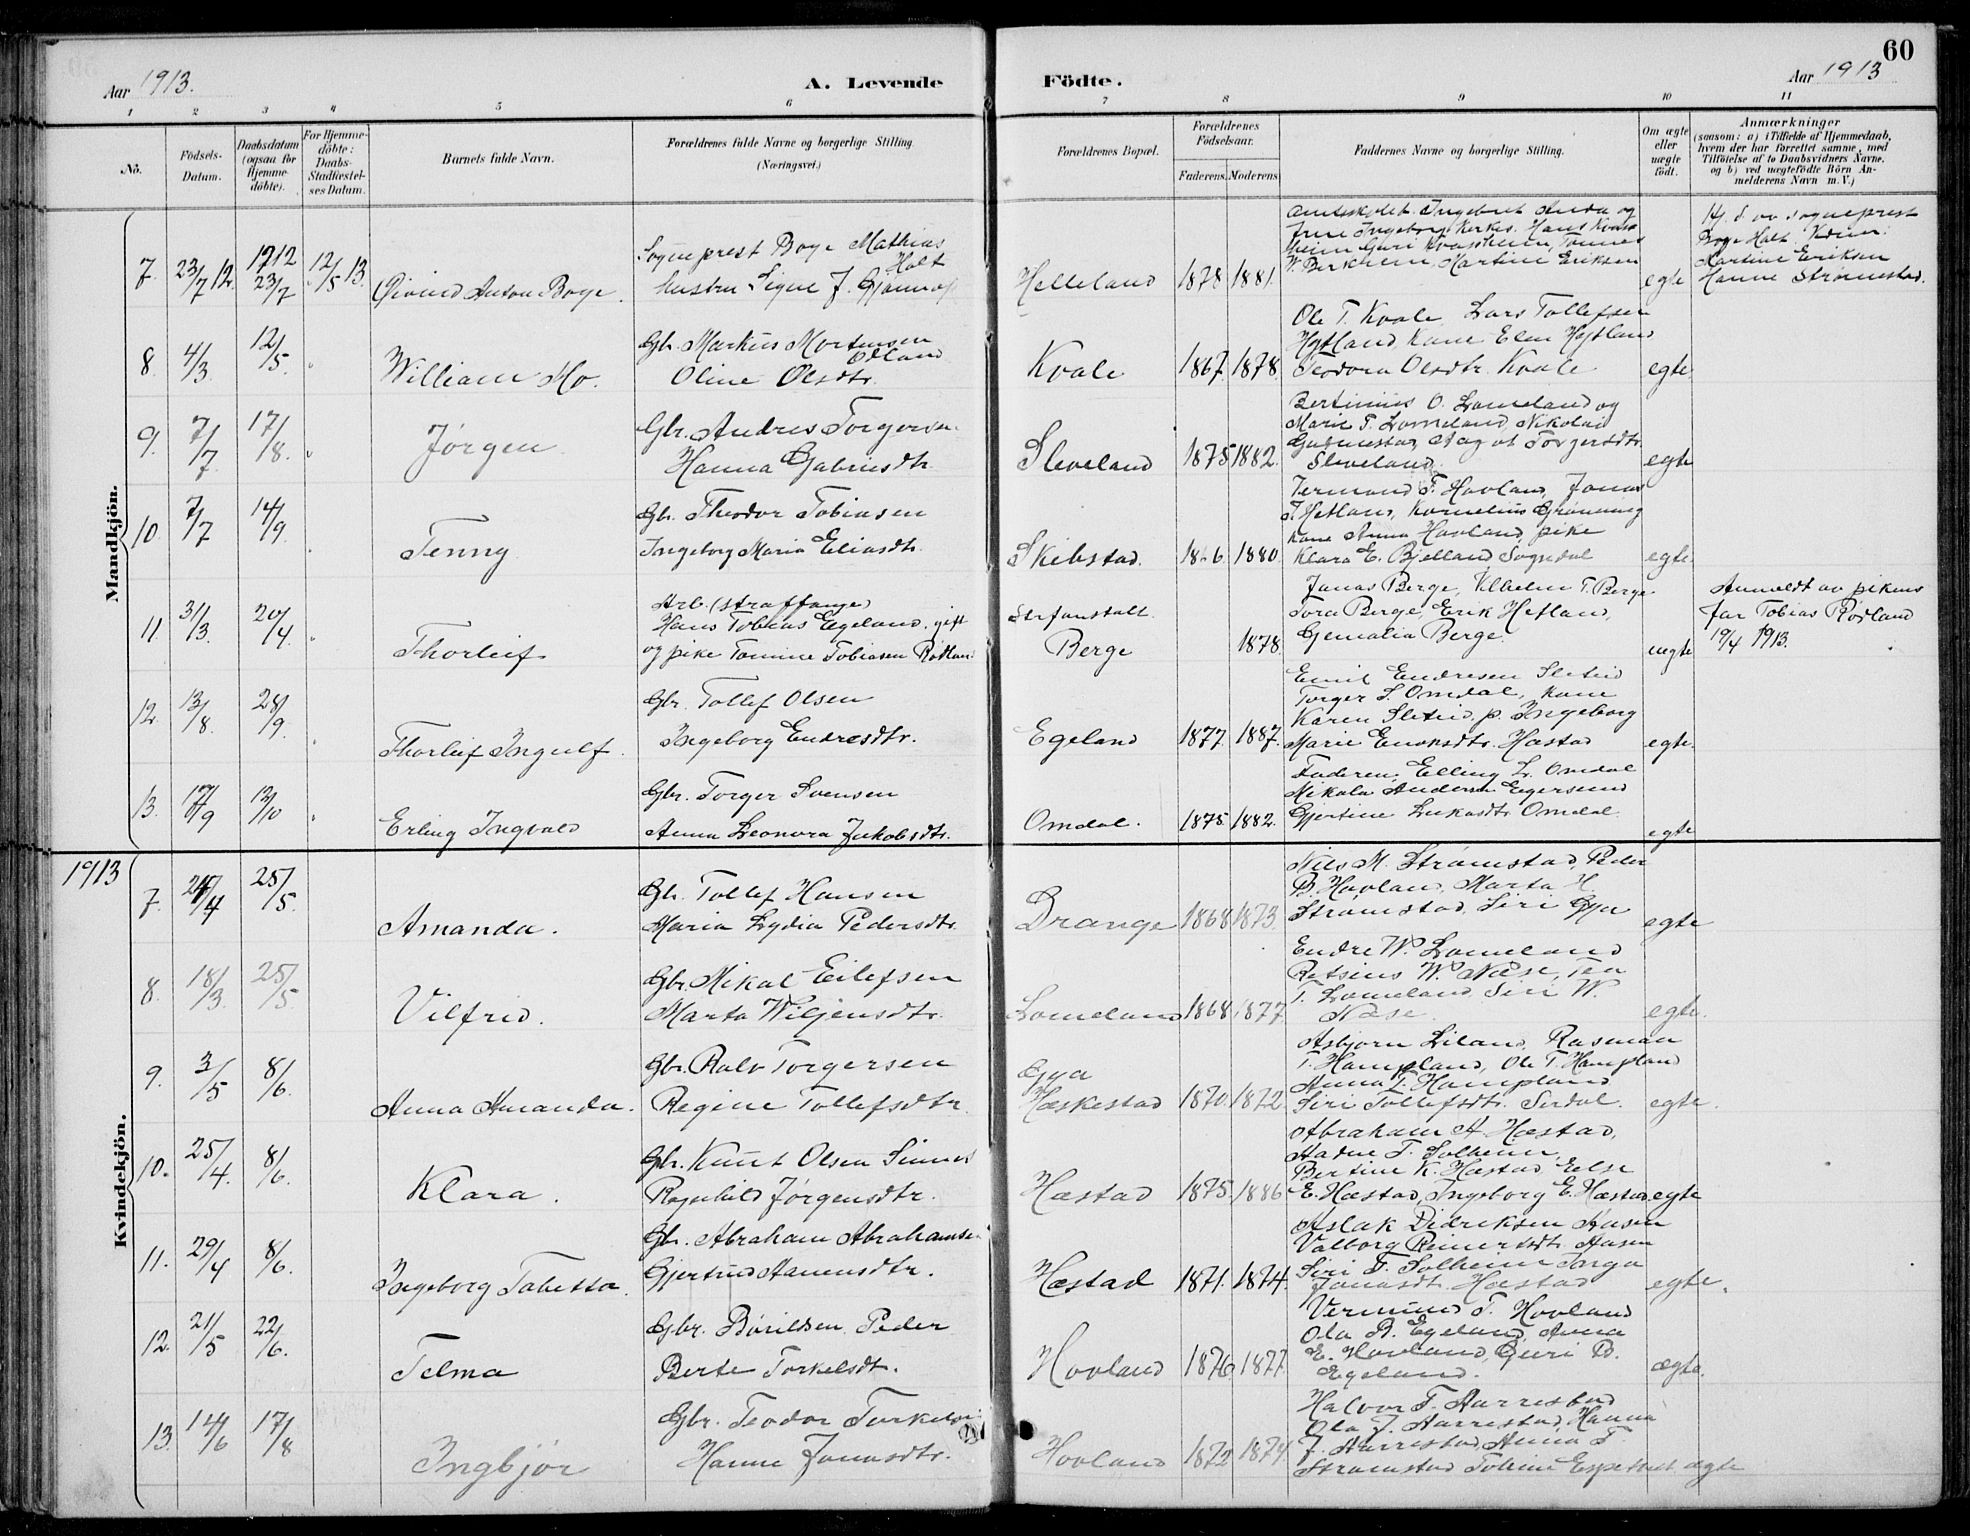 60
Aar 1913.
A. Levende
Födte.
Aar 1913
1 2 3 4 5 6 7 8 9 10 11
No.
Födsels-
Datum.
Daabsdatum
(ogsaa for
Hjemme-
döbte).
For Hjemme-
döbte:
Daabs-
Stadfæstel-
ses Datum.
Barnets fulde Navn.
Forældrenes fulde Navne og borgerlige Stilling.
(Næringsvei.)
Forældrenes Bopæl.
Forældrenes
Födselsaar.
Faderens. Moderens.
Faddernes Navne og borgerlige Stilling.
Om ægte
eller
uægte
födt.
Anmærkninger
(saasom: a) i Tilfælde af Hjemmedaab,
hvem der har forrettet samme, med
Tilföielse af to Daabsvidners Navne,
og b) ved uægtefödte Börn An-
melderens Navn m. V.)
Mandkjön.
7. 23/7 12. 1912 23/7 12/5 13.
Øivind Anton Boye.
Sogneprest Boye Mathias
Holt
hustru Signe J.
Helleland 1878 1881.
Ingebret Anda og
Ingeborg Hans
Guri Kvassheim, Tønnes
Martine Eriksen
egte
Hj. d. av sogneprest
Boye Holt.
Martine Eriksen
Hanne Strømstad.
8. 4/3. 12/5.
William Mo.
Gbr. Markus Mortensen
Odland
Oline Olsdtr.
Kvale 1867. 1878.
Ole T. Kvale, Lars Tollefsen
Hytland, Kone Elen Hytland
Teodora Olsdtr. Kvale
egte
9. 7/7 17/8.
Jørgen
Gbr. Andres Torgersen
Hanna Gabrielsdtr.
Sleveland 1875 1882.
Bertinius O. Lomeland og
Marie T. Lomeland, Nikolai
Torgersdtr.
Sleveland.
egte
10. 7/7 14/9.
Tenny
Gbr. Theodor Tobiasen
Ingeborg Maria Eliasdtr.
Skibstad. 1880.
Vermund T. Hovland, Jonas
T. Hetland, Kornelius Grønning
kone Anna Hovland, pike
Klara E. Bjelland, Sogndal
egte.
11. 31/3. 20/4.
Thorleif
Arb. (straffange)
Hans Tobias Egeland. gift
og pike Tomine Tobiasen
Strfanstalt
Berge 1878.
Jonas Berge, Vilhelm T. Berge.
Tora Berge, Erik Hetland,
Gjemalia Berge.
uegte
Anmeldt av pikens
far Tobias
19/4 1913.
12. 13/8. 28/9.
Thorleif Ingulf.
Gbr. Tollef Olsen
Ingeborg Endresdtr.
Egeland 1877. 1887.
Emil Endresen Sleteid
Torger S. Omdal, kone
Karen Sleteid, p. Ingeborg
Marie Hæstad
egte.
13. 17/9 12/10
Erling Ingvald
Gbr. Torger Svensen
Anna Leonora Jakobsdtr.
Omdal. 1875. 1882.
Faderen, Elling L. Omdal
Mikala Andersen Egersund
Gjertine Lukasdtr. Omdal
egte
1913
Kvindekjön.
7. 24/4 25/5.
Amanda.
Gbr. Tollef Hansen
Maria Lydia Pedersdtr.
Drange 1868 1873.
Nils M. Strømstad, Peder
B. Hovland, Marta H.
Strømstad, Siri Gya
egte
8. 18/3. 25/5
Vilfrid.
Gbr. Mikal Eilefsen
Marta Wiljensdtr.
Lomeland 1868 1877
Endre W. Lomeland
W. Næse, Tea
T. Lomeland, Siri W.
Næse.
egte.
9. 3/5 8/6.
Anna Amanda.
Gbr. Rolv Torgersen
Regine Tollefsdtr.
Gya
Hæskestad 1870. 1872.
Asbjørn Liland, Rasmus
T. Hampland, Ole T. Hampland
Anna T. Hampland
Siri Tollefsdtr. Sirdal.
egte.
10. 25/4. 8/6.
Klara.
Gbr. Knut Olsen Sinnes
Ragnhild Jørgensdtr.
Hæstad 1875. 1886
Abraham A. Hæstad,
Aadne T. Solheim,
Bertine K. Hæstad, Else
E. Hæstad, Ingeborg E. Hæstad.
egte
11. 29/4 8/6.
Ingeborg Tabetta.
Gbr. Abraham Abrahamsen
Gjertrud Aanensdtr.
Hæstad 1871. 1874.
Aslak Didriksen Aasen
Valborg Reinertsdtr. Aasen
Siri T. Solheim Inga
Jonasdt. Hæstad
egte.
12. 21/5 22/6.
Telma
Gbr. Bårildsen Peder
Berte Torkelsdt.
Hovland 1876 1877.
Vermund T. Hovland
Ola B. Egeland, Anna
E. Hovland, Guri B.
Egeland.
ægte.
13. 14/6 17/8
Ingbjør
Gbr. Teodor Torkelsen
Hanne Jonasdtr.
Hovland 1872 1874.
Halvor T. Aarrestad
Ola J. Aarrestad, Hanna
J. Aarrestad, Anna T.
Strømstad Tobine
ægte